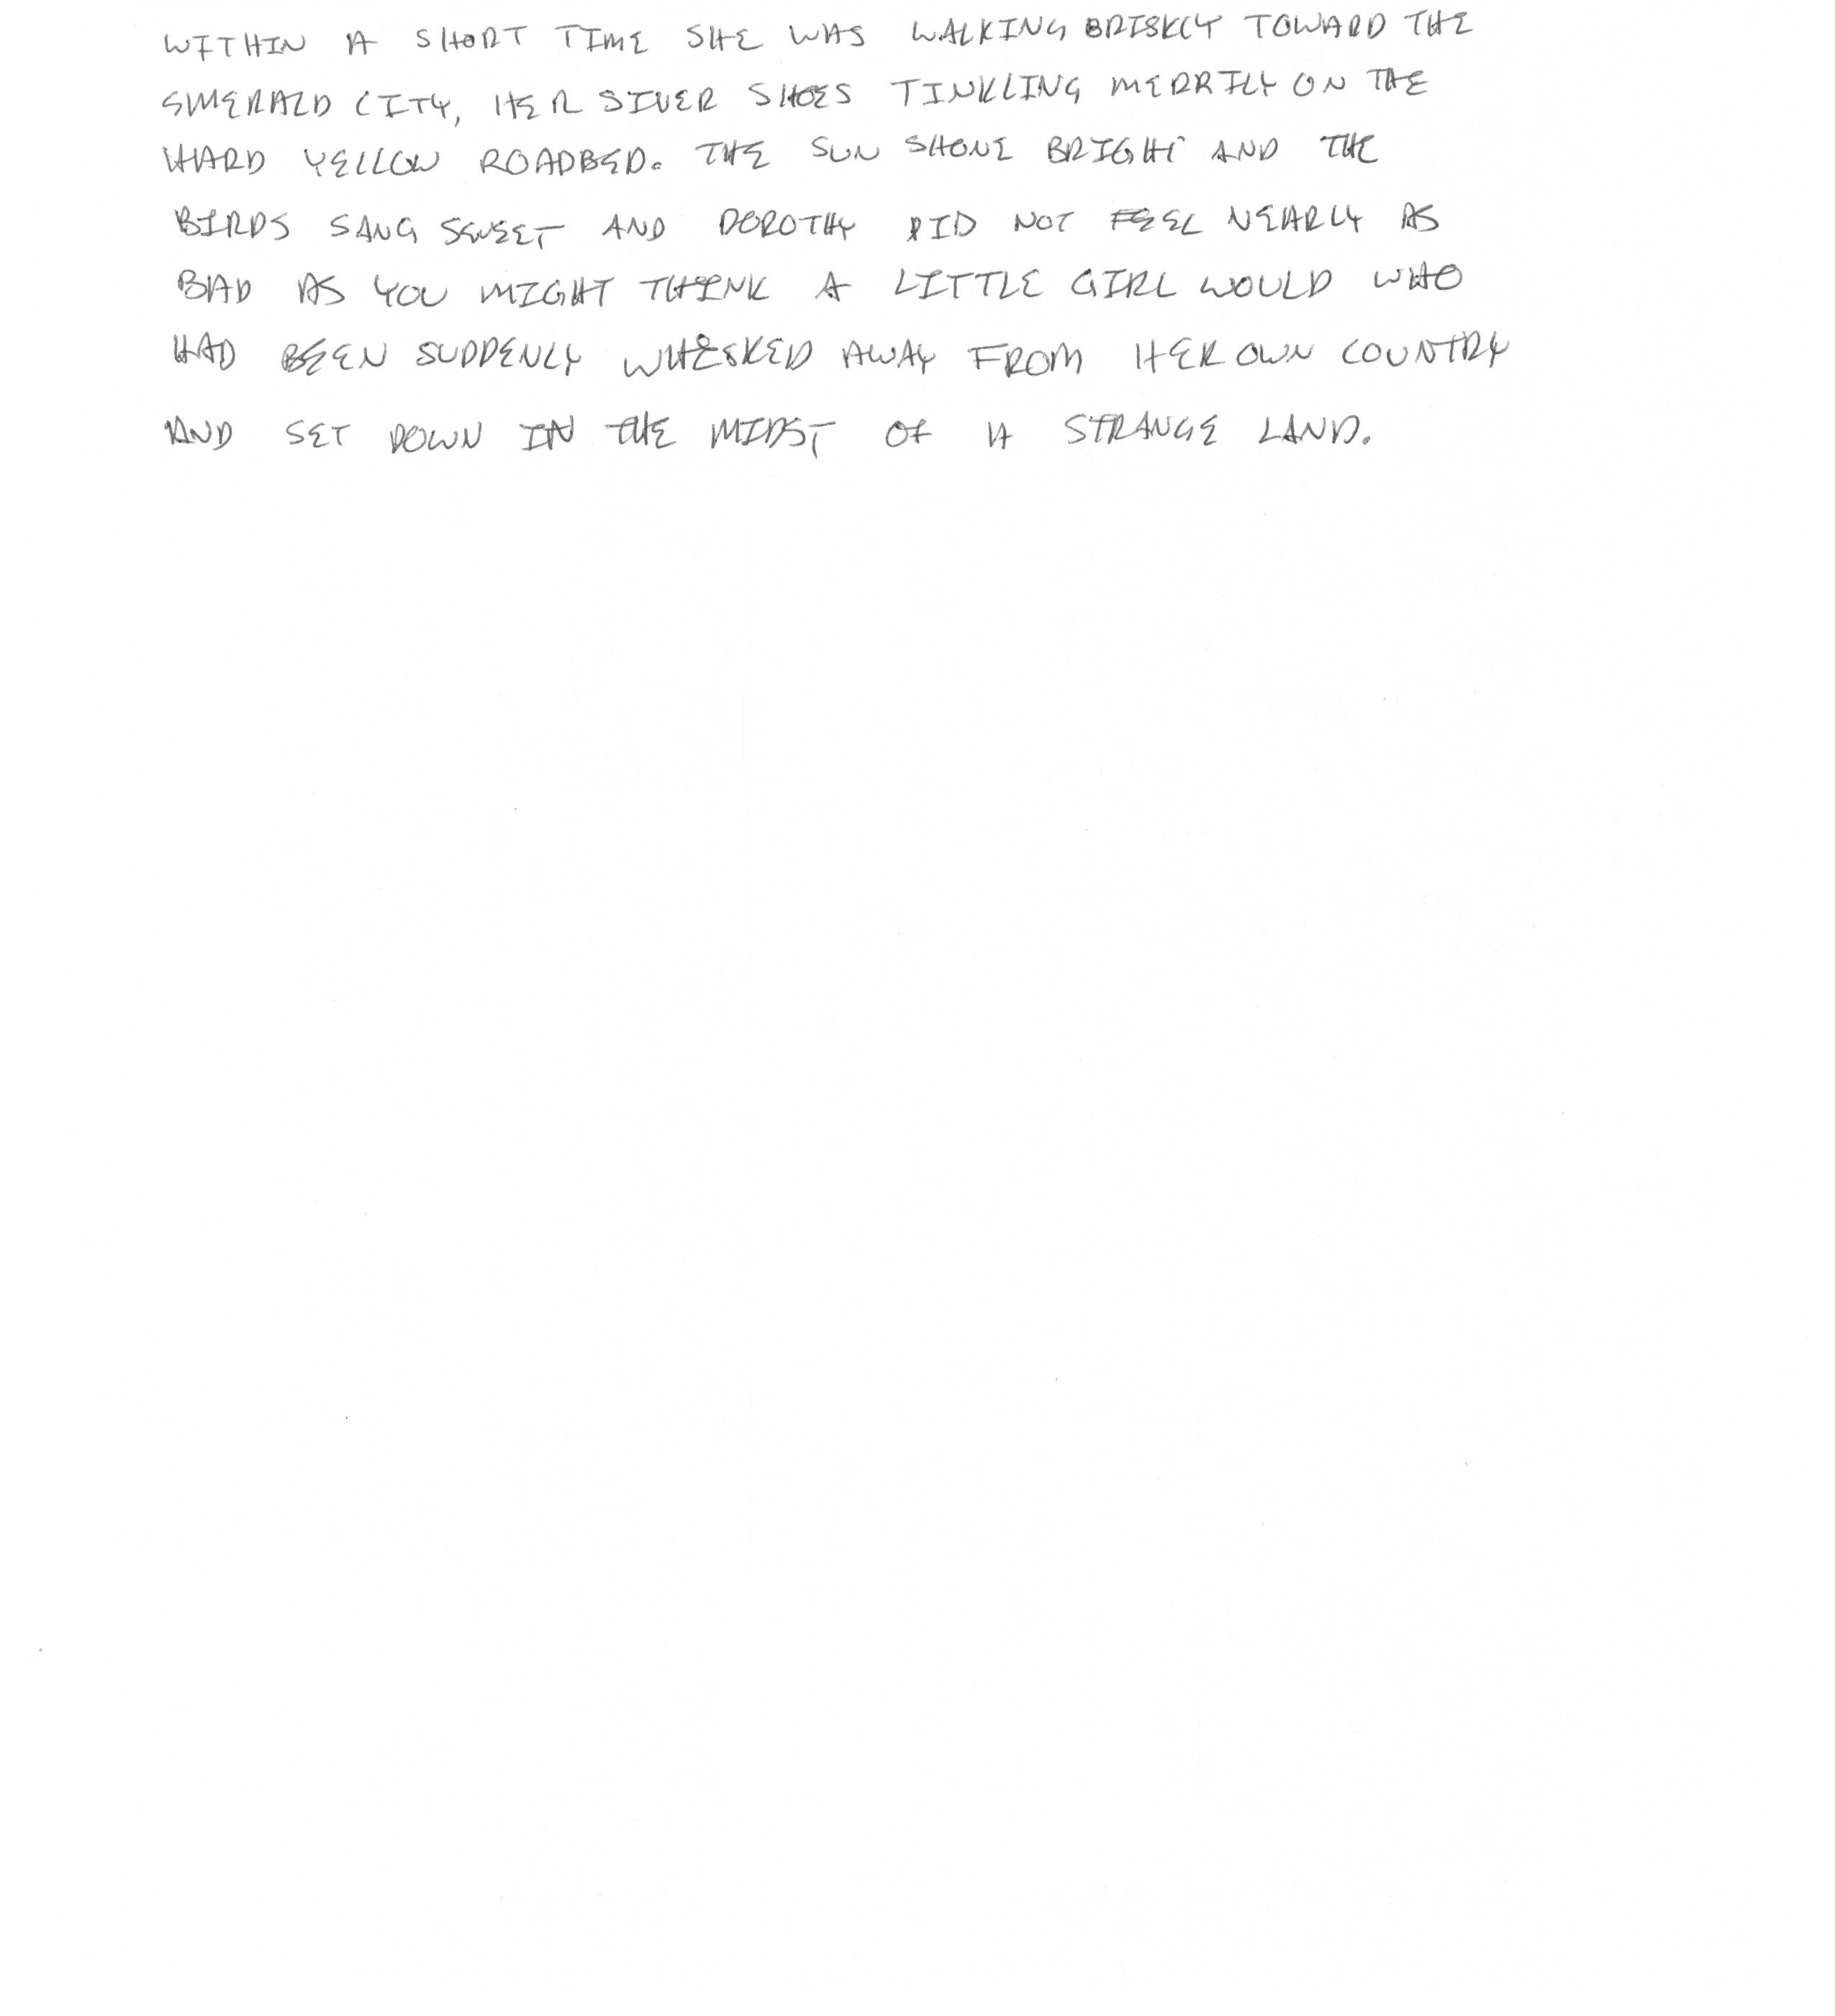 WITHIN A SHORT TIME SHE WAS WALKING BRISKLY TOWARD THE
EMERALD CITY, HER SIVER SHOES TINKLING MERRILY ON THE
HARD YELLOW ROADBED. THE SUN SHONE BRIGHT AND THE
BIRDS SANG SWEET AND DOROTHY DID NOT FEEL NEARLY AS
BAD AS YOU MIGHT THINK A LITTLE GIRL WOULD WHO
HAD BEEN SUDDENLY WHISKED AWAY FROM HER OWN COUNTRY
AND SET DOWN IN THE MIDST OF A STRANGE LAND.